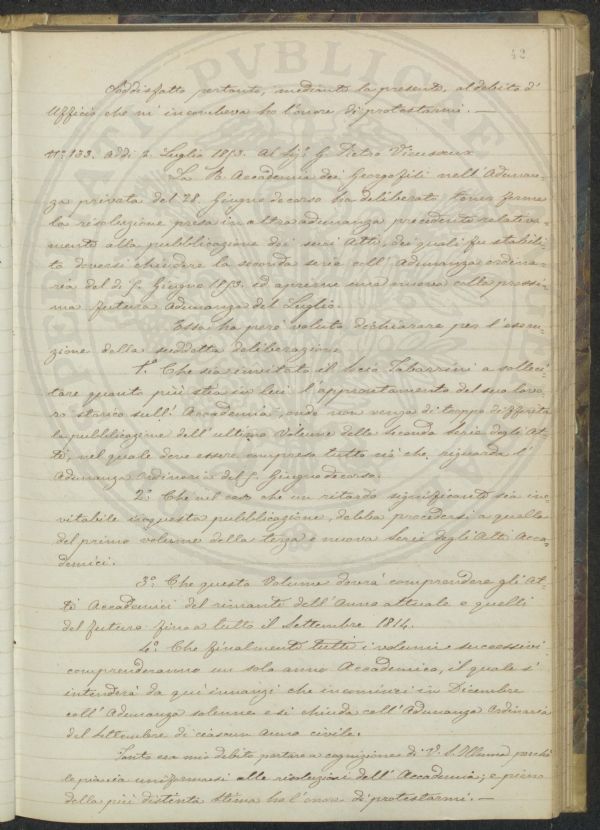 42
Soddisfatto pertanto, mediante la presente, al debito d'
Ufficio che m' incombeva ho l'onore di protestarmi. —
N.° 133. Addì 2. Luglio 1853. Al Sig.r G. Pietro Vieusseux
La R. Accademia dei Georgofili nell' Adunan-
za privata del 28. Giugno decorso ha deliberato tener ferma
la risoluzione presa in altra adunanza precedente relativa-
mente alla pubblicazione dei suoi Atti, dei quali fu stabili-
to doversi chiudere la seconda serie coll' Adunanza ordina-
ria del dì 5. Giugno 1853. ed aprirne una nuova colla prossi-
ma futura Adunanza del Luglio.
Essa ha però voluto dichiarare per l'esecu-
zione della suddetta deliberazione
1.° Che sia invitato il Socio Tabarrini a solleci-
tare quanto più stia in lui l'approntamento del suo lavo-
ro storico sull' Accademia, onde non venga di troppo differita
la pubblicazione dell' ultimo Volume della seconda Serie degli At-
ti, nel quale deve essere compreso tutto ciò che riguarda l'
Adunanza Ordinaria del 5. Giugno decorso.
2.° Che nel caso che un ritardo significante sia ine-
vitabile in questa pubblicazione, debba procedersi a quella
del primo volume della terza e nuova Serie degli Atti Acca-
demici.
3.° Che questo Volume dovrà comprendere gli At-
ti Accademici del rimante dell' Anno attuale e quelli
del futuro fino a tutto il Settembre 1854.
4.° Che finalmente tutti i volumi successivi
comprenderanno un solo anno Accademico, il quale s'
intenderà da qui innanzi che incominci in Dicembre
coll' Adunanza solenne e si chiuda coll' Adunanza Ordinaria
del Settembre di ciascun anno civile.
Tanto era mio debito portare a cognizione di V. S. Ill.ma perché
le piaccia uniformarsi alle risoluzioni dell' Accademia; e pieno
della più distinta stima ho l'onore di protestarmi. —